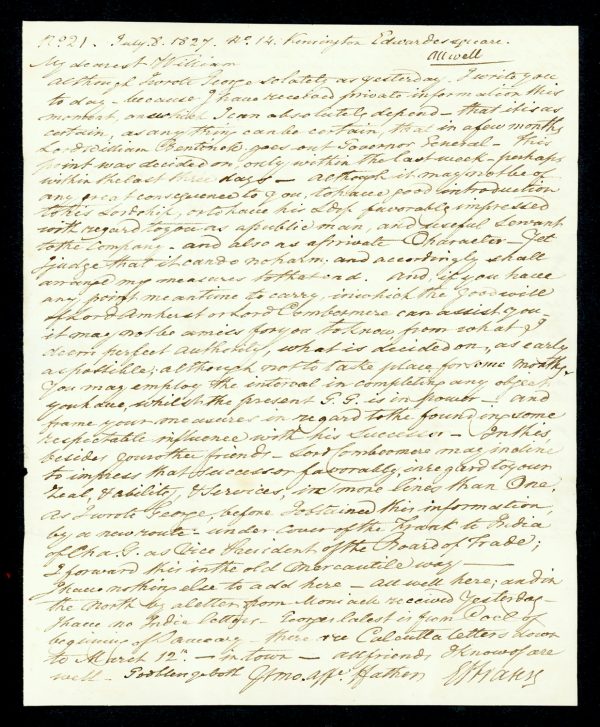 No. 21. July 8. 1827. No. 14. Kensington Edwardes square.
All well
My dearest William
Although I wrote George so lately as yesterday. I write you
to day - because I have received private information this
moment, on which I can absolutely depend - that it is as
certain, as any thing can be certain, that in a few months
Lord William Bentinck goes out Governor General - This
point was decided on, only within the last week - perhaps
within the last three days - Although it may not be of
any great consequence to you, to have good introduction
to his Lordship, or to have his Ldp favorably impressed
with regard to you as a public man, and useful Servant
to the Company - and also as a private Character - Yet
I judge that it can do no harm; and accordingly shall
arrange my measures to that end. And, if you have
any point meantime to carry, in which the good will
of Lord Amherst or Lord Combermere can assist you -
it may not be amiss for you to know from what I
deem perfect authority, what is decided on, as early
as possible; although not to take place for some months.
You may employ the interval in completing any object
you have, whilst the present G. G. is in power - and
frame your measures in regard to the founding some
respectable influence with his Successor - In this,
besides your other friends - Lord Combermere may incline
to impress that successor favorably, in regard to your
Zeal, & ability, & Services, in more lines than One.
As I wrote George, before I obtained this information,
by a new route - under cover of the Frank to India
of Cha. G. as Vice President of the Board of Trade;
I forward this in the old mercantile way -
I have nothing else to add here - All well here; and in
the North by a letter from Moniack received Yesterday -
I have no India letters - Your latest is from
beginning of January - there are Calcutta letters down
to March 12th - in town - All friends I know of are
well - God bless you both Yr mo. affe. Father